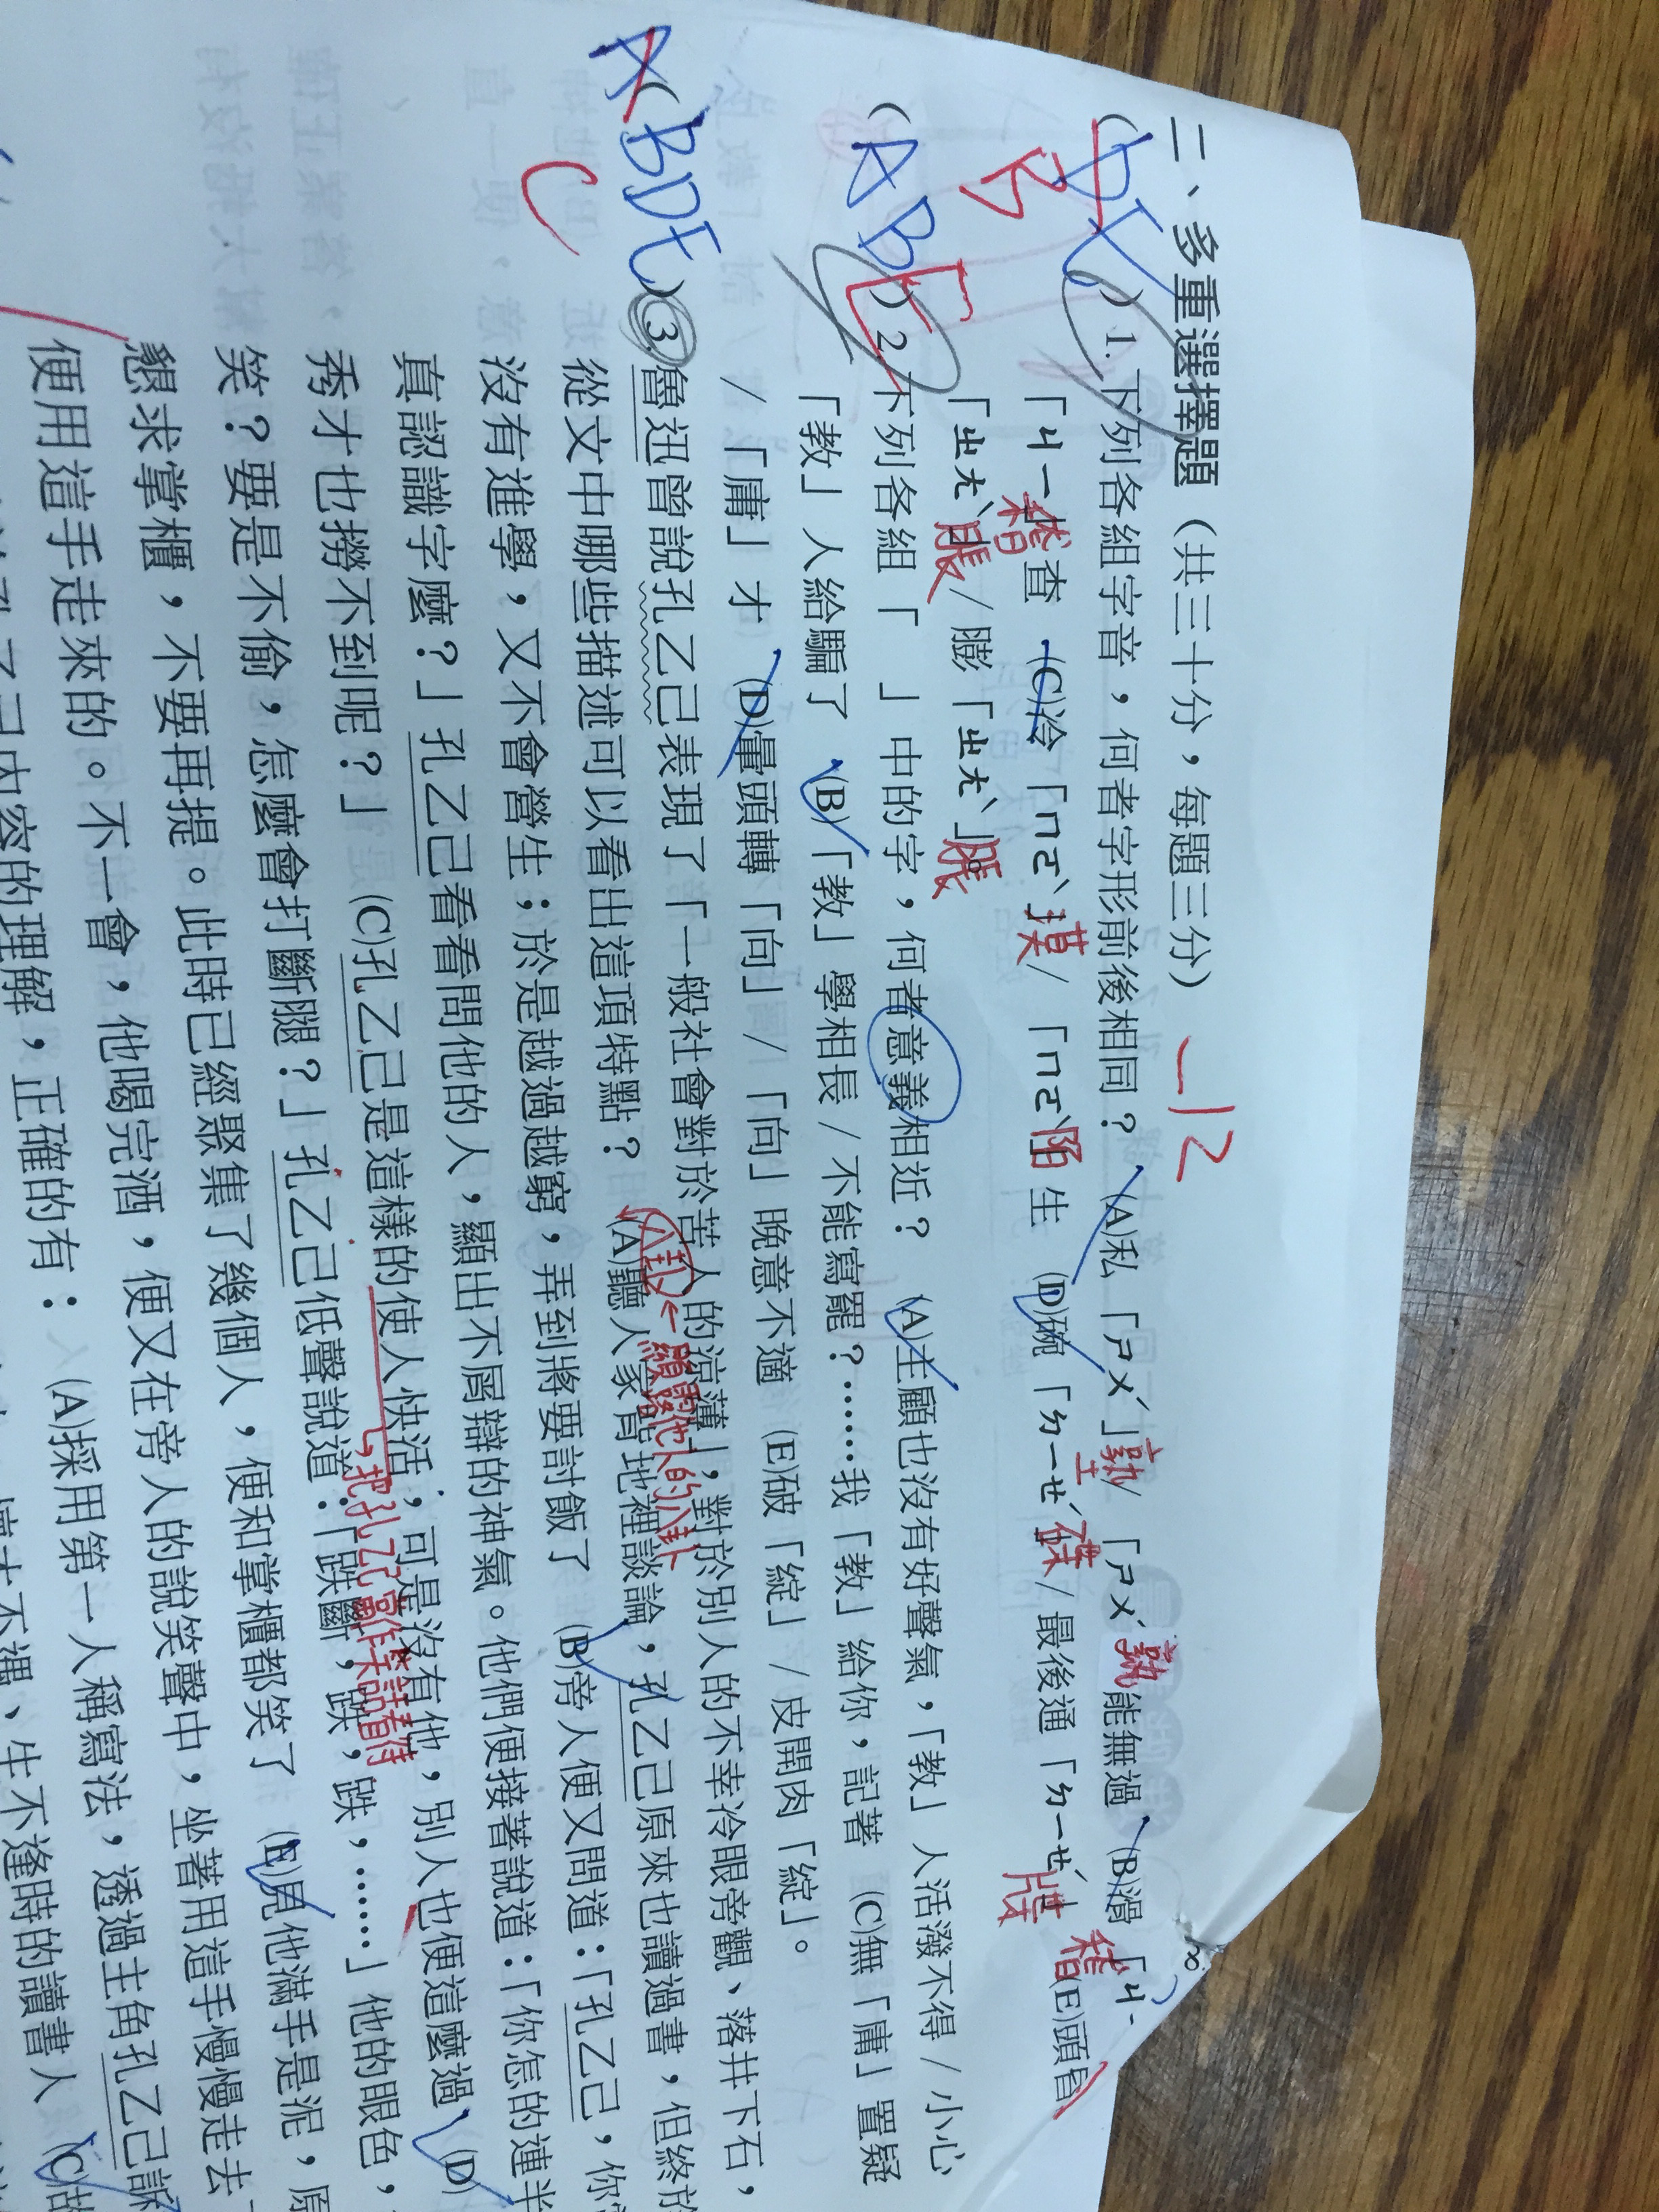 二、多重選擇題（共三十分，每題三分） -12
( B ) 1. 下列各組字音，何者字形前後相同？ (A)私「ㄕㄨˊ」塾/「ㄕㄨˊ」孰能無過 (B)滑「ㄐㄧ
「ㄐㄧ」稽查 (C)冷「ㄇㄛˋ」漠/「ㄇㄛˋ」陌生 (D)碗「ㄉㄧㄝˊ」碟/最後通「ㄉㄧㄝˊ」牒 (E)頭昏
「ㄓㄤˋ」脹/膨「ㄓㄤˋ」脹。
( ABE ) 2. 下列各組「 」中的字，何者意義相近？ (A)主顧也沒有好聲氣，「教」人活潑不得/小心
「教」人給騙了 (B)「教」學相長/不能寫罷？……我「教」給你，記著 (C)無「庸」置疑
/「庸」才 (D)暈頭轉「向」/「向」晚意不適 (E)破「綻」/皮開肉「綻」。
( ABDE ) 3. 魯迅曾說孔乙己表現了「一般社會對於苦人的涼薄」，對於別人的不幸冷眼旁觀、落井下石，
C
從文中哪些描述可以看出這項特點？ (A)聽人家背地裡談論，孔乙己原來也讀過書，但終於
八卦
沒有進學，又不會營生；於是越過越窮，弄到將要討飯了 (B)旁人便又問道：「孔乙己，你
真認識字麼？」孔乙己看看問他的人，顯出不屑辯的神氣。他們便接著說道：「你怎的連半
秀才也撈不到呢？」 (C)孔乙己是這樣的使人快活，可是沒有他，別人也便這麼過 (D)
把孔乙己當作笑話看待
笑？要是不偷，怎麼會打斷腿？」孔乙己低聲說道：「跌斷，跌，跌，……」他的眼色，
懇求掌櫃，不要再提。此時已經聚集了幾個人，便和掌櫃都笑了 (E)見他滿手是泥，原
便用這手走來的。不一會，他喝完酒，便又在旁人的說笑聲中，坐著用這手慢慢走去
內容的理解，正確的有： (A)採用第一人稱寫法，透過主角孔乙己訴
生不逢時的讀書人 (C)